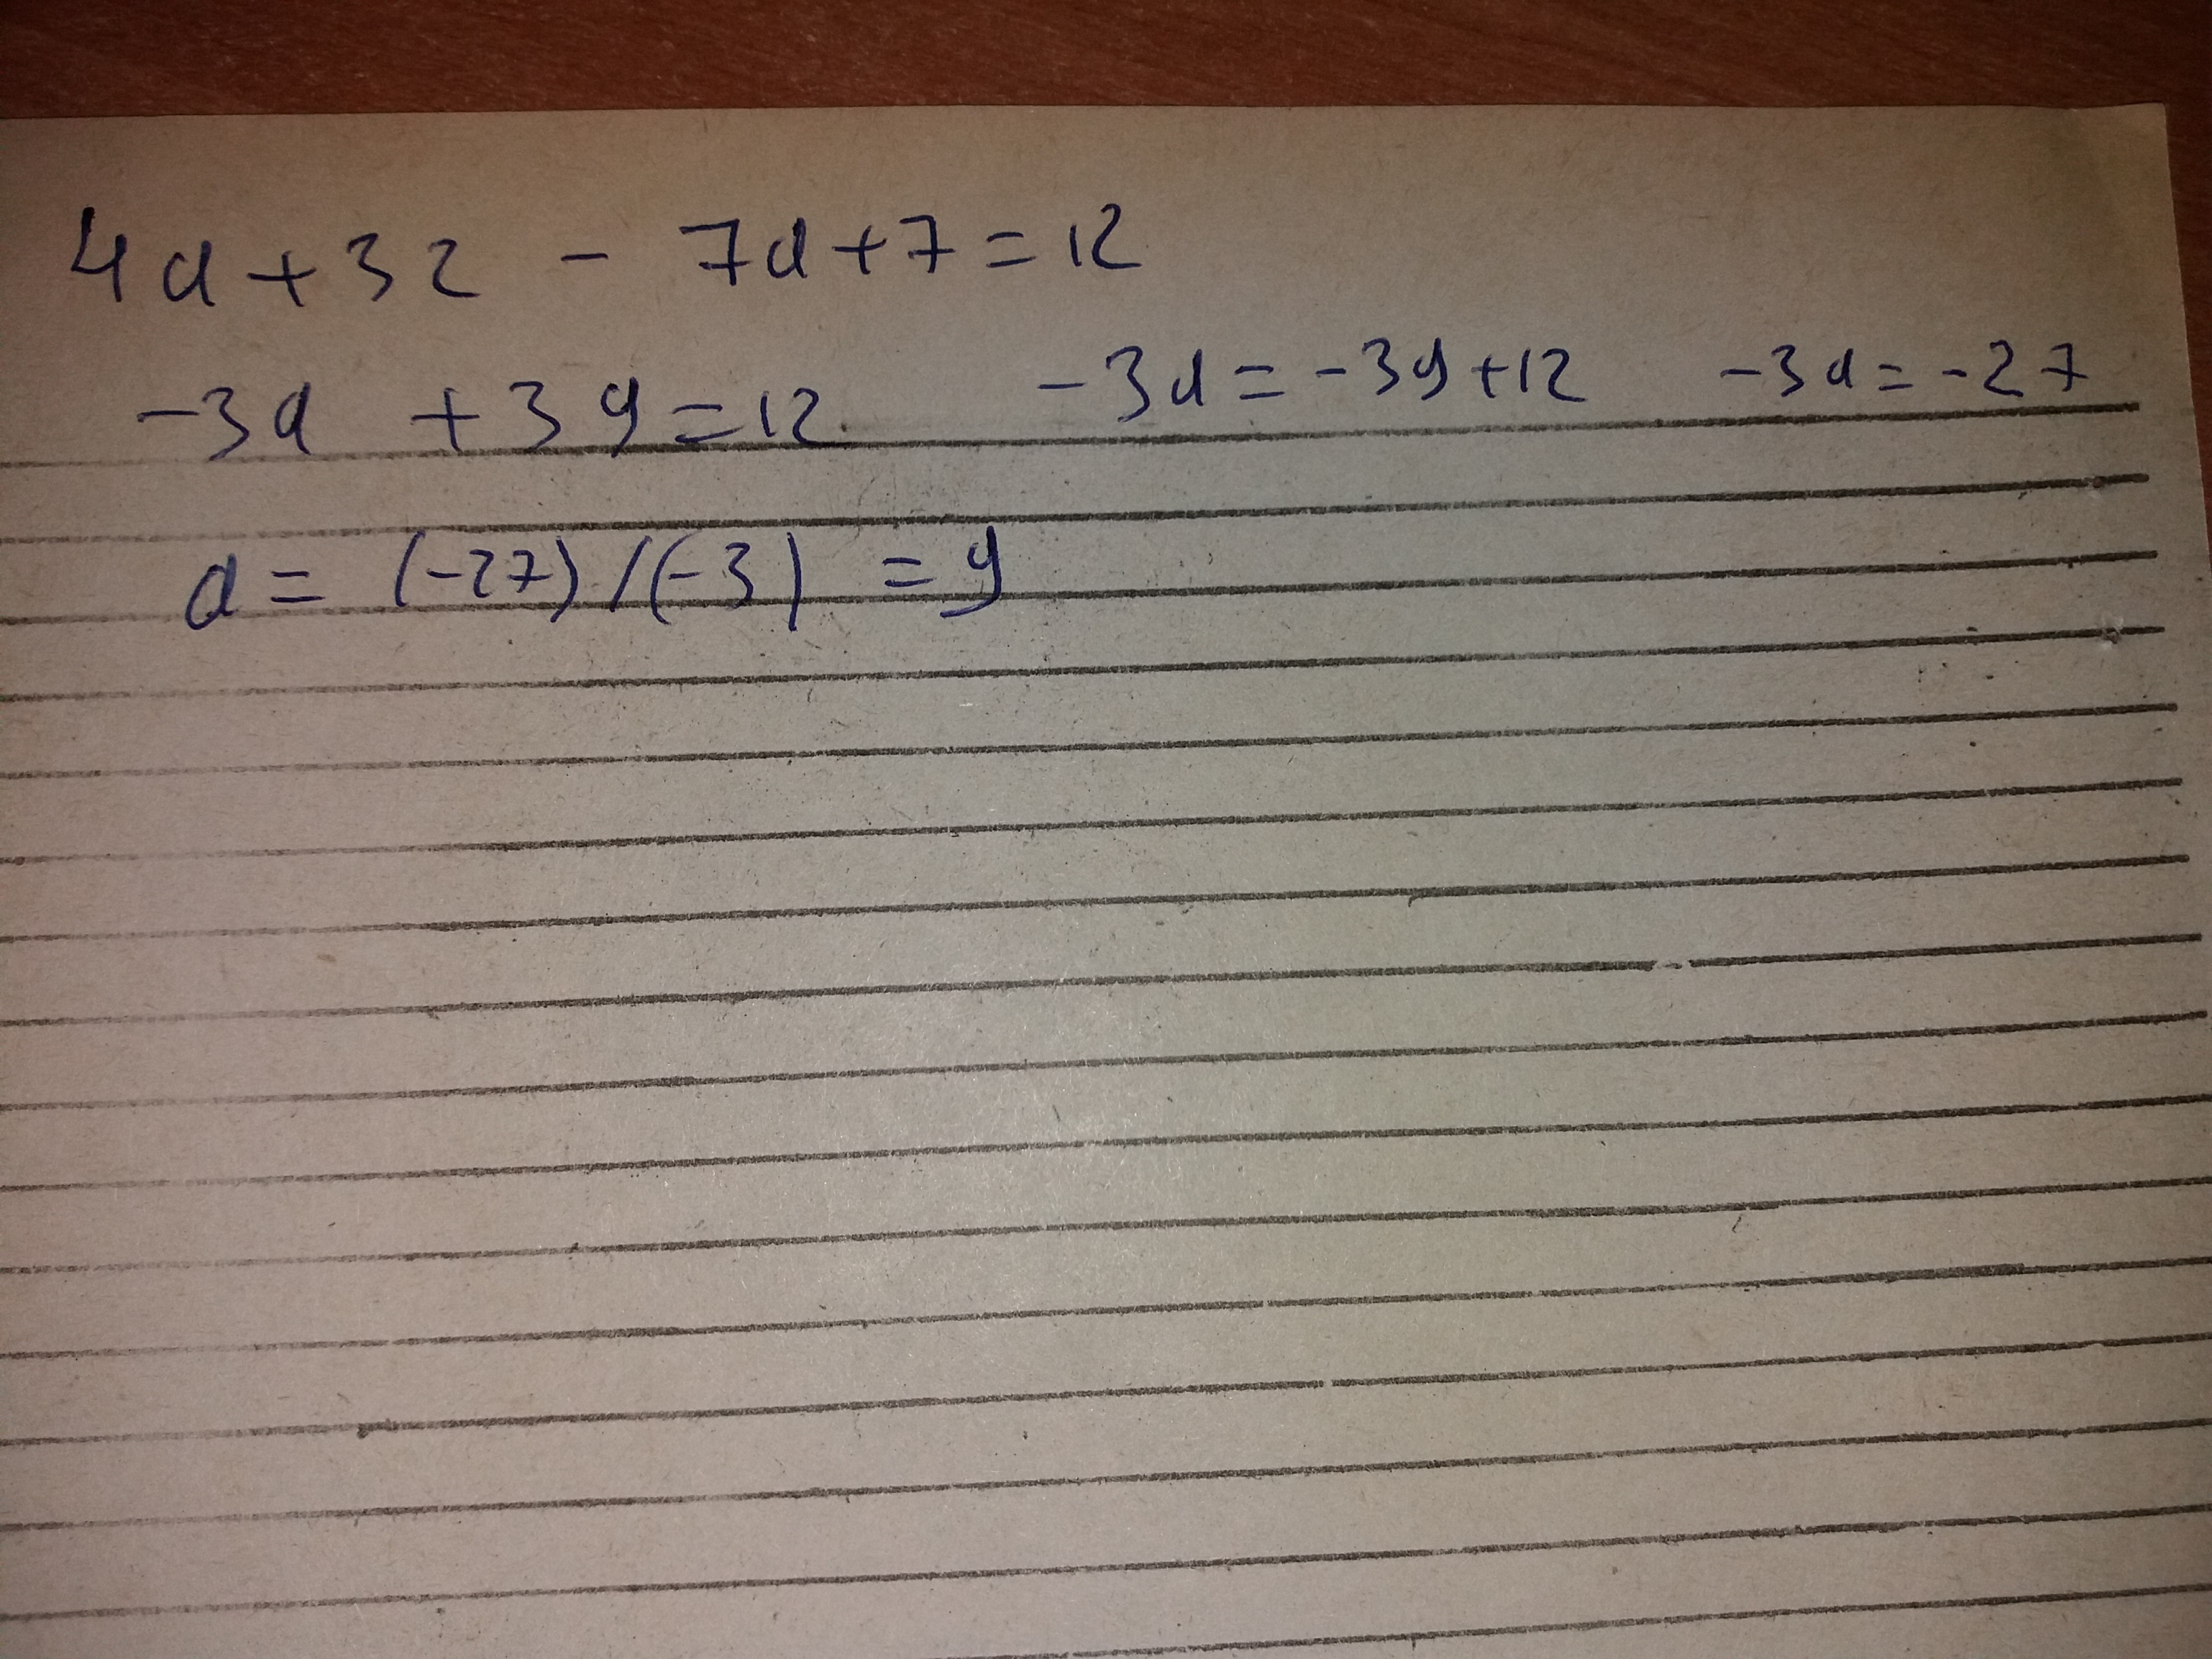 4a+32 - 7a+7=12
-3a +39=12 -3a=-39+12 -3a=-27
a= (-27)/(-3) =9